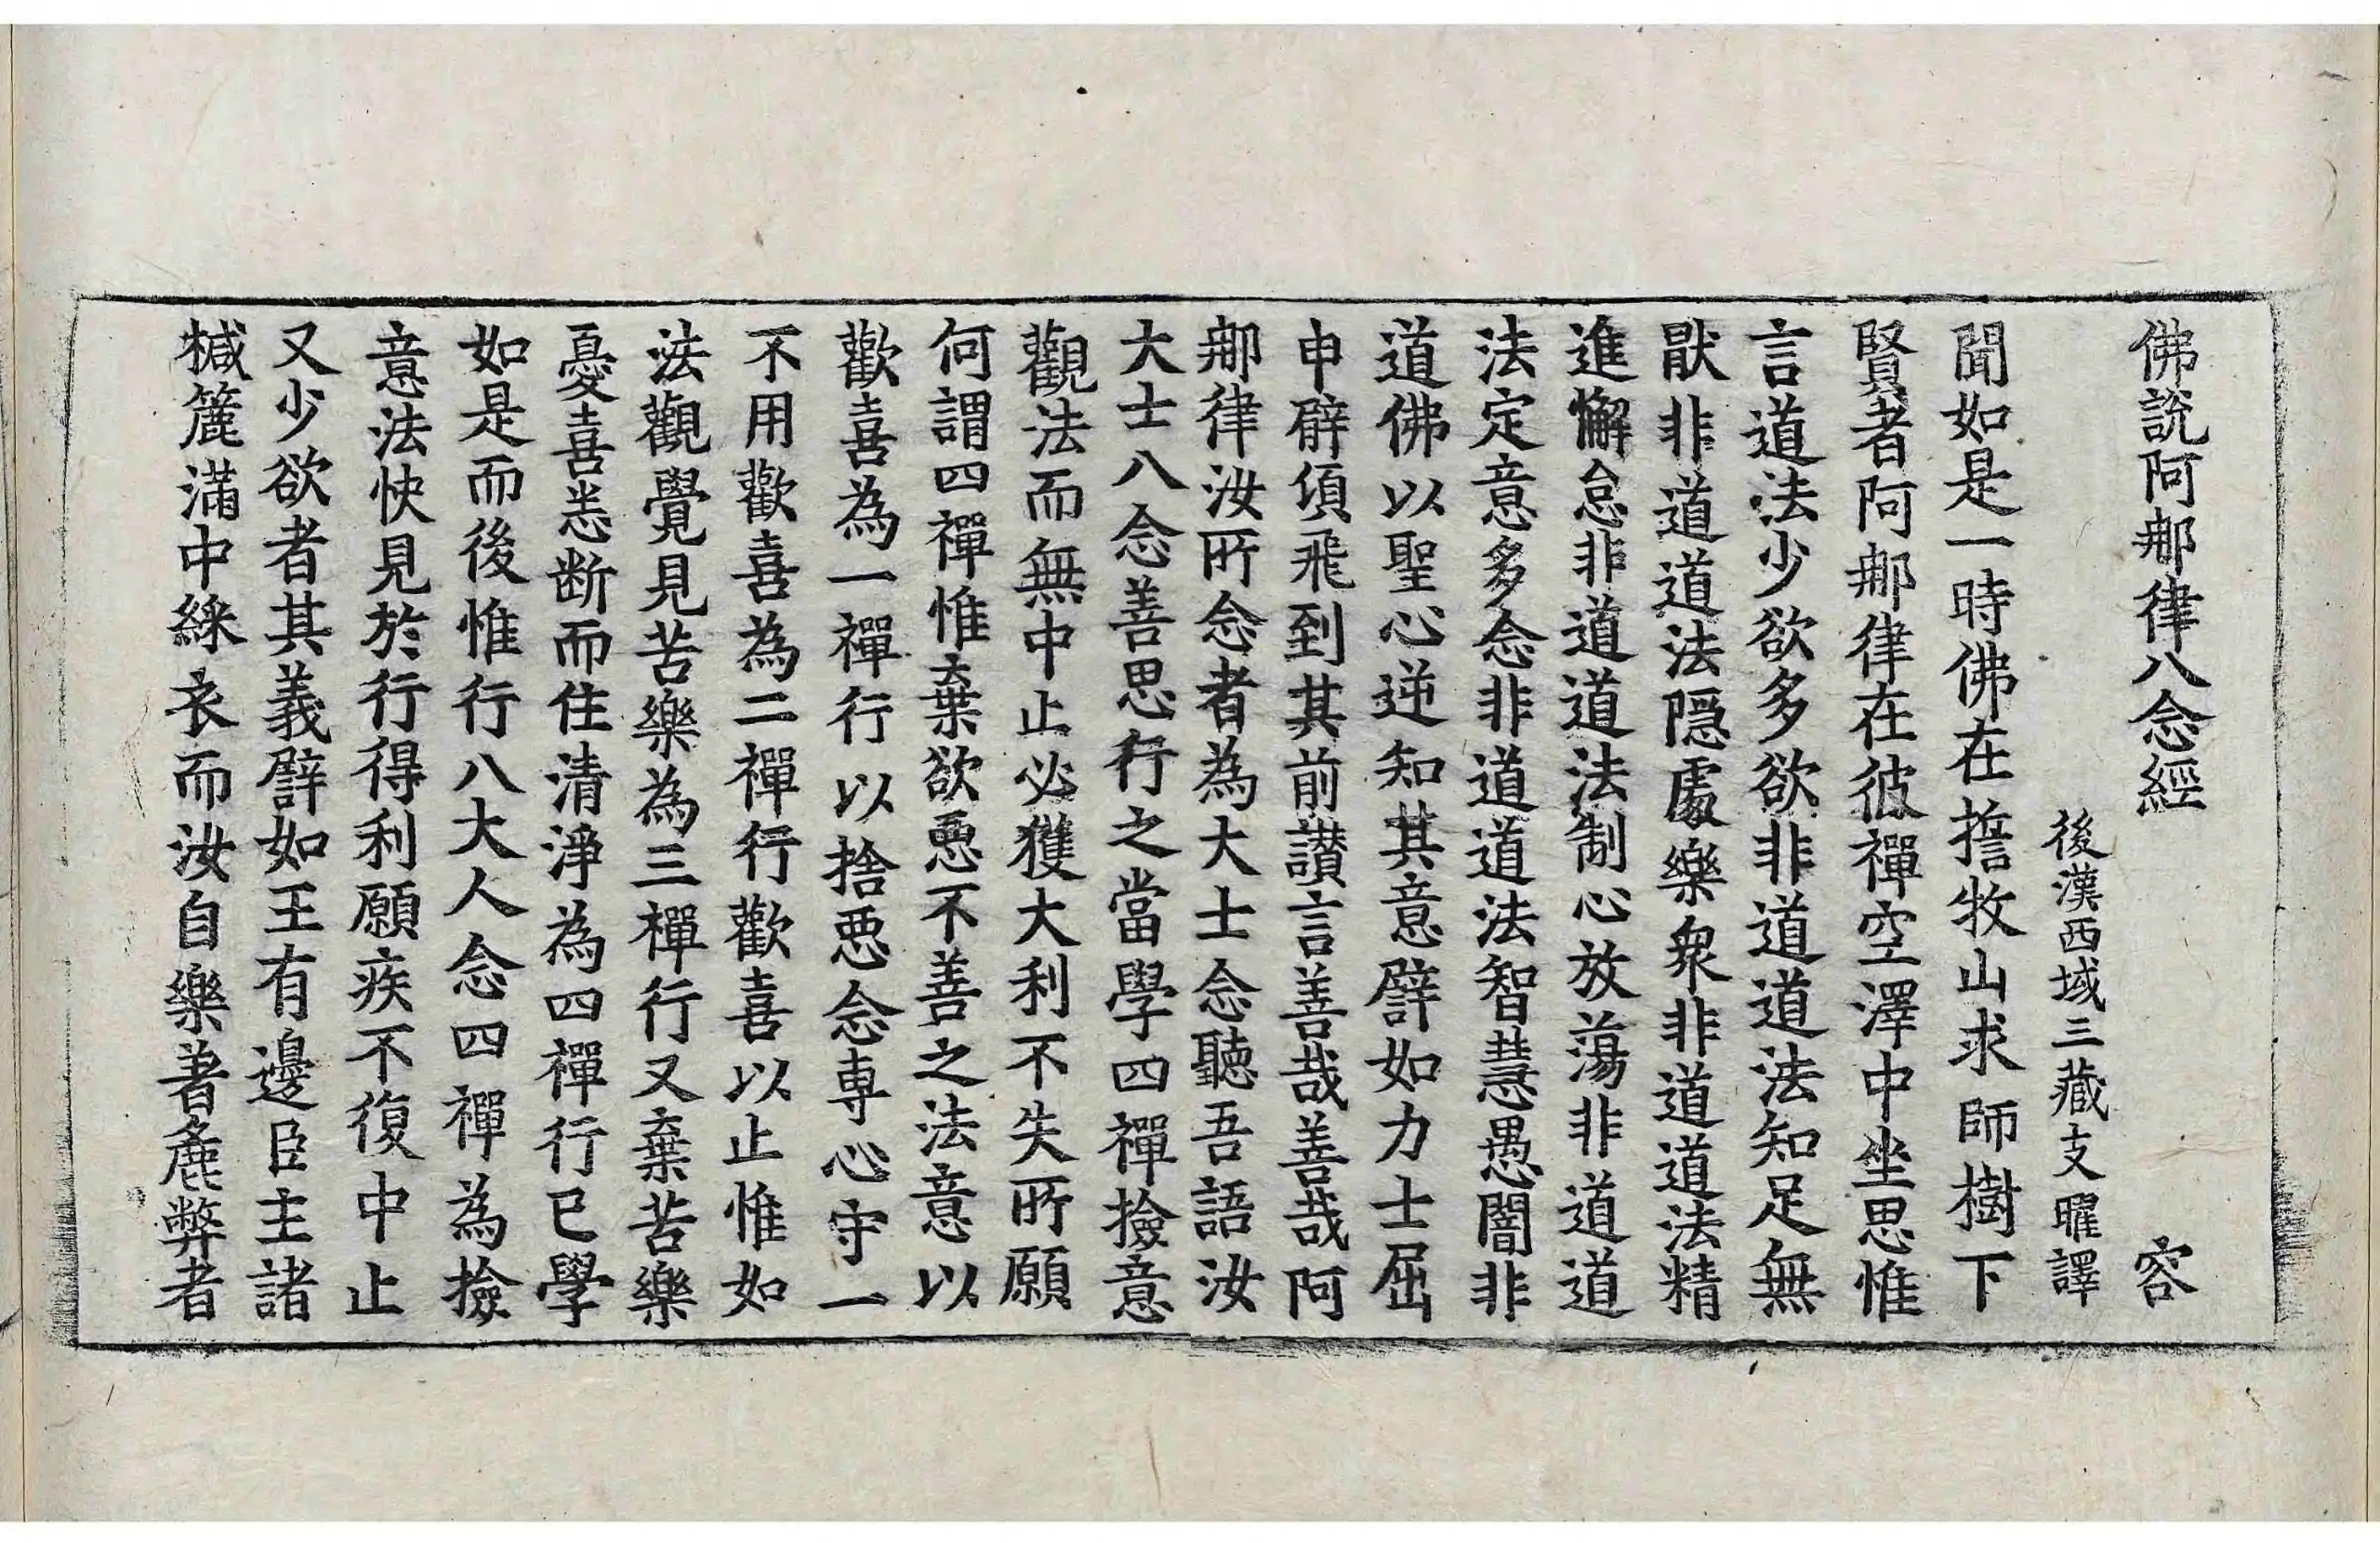 佛說阿那律八念經　容
後漢西域三藏支曜譯
聞如是一時佛在擔牧山求師樹下
賢者阿那律在彼禪空澤中坐思惟
言道法少欲多欲非道道法知足無
猒非道道法隱處樂衆非道道法精
進懈怠非道道法制心放蕩非道道
法定意多念非道道法智慧愚闇非
道佛以聖心逆知其意譬如力士屈
申臂頃飛到其前讃言善哉善哉阿
那律汝所念者為大士念聽吾語汝
大士八念善思行之當學四禪撿意
觀法而無中止必獲大利不失所願
何謂四禪惟棄欲惡不善之法意以
歡喜為一禪行以捨惡念專心守一
不用歡喜為二禪行歡喜以止惟如
法觀覺見苦樂為三禪行又棄苦樂
憂喜悉断而住清淨為四禪行已學
如是而後惟行八大人念四禪為撿
意法快見於行得利願疾不復中止
又少欲者其義譬如王有邊臣主諸
椷簏滿中綵衣而汝自樂著麁弊者